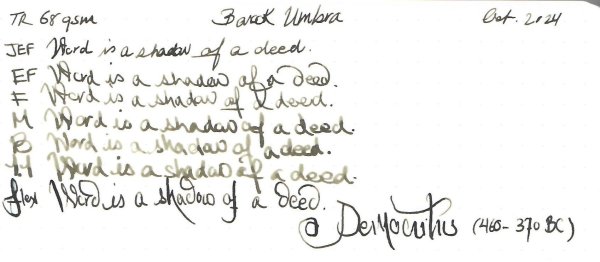 TR 68 gsm Barock Umbra Oct. 2024
JEF Word is a shadow of a deed.
EF Word is a shadow of a deed.
F Word is a shadow of a deed.
M Word is a shadow of a deed.
B Word is a shadow of a deed.
Word is a shadow of a deed.
flex Word is a shadow of a deed.
Democritus (460-370 BC)